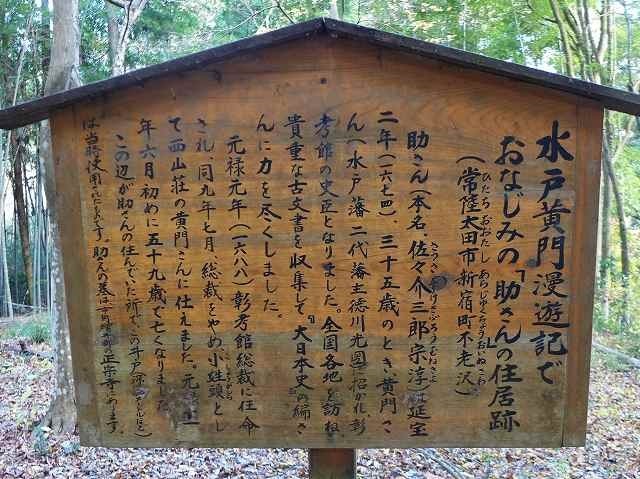 水戸黄門漫遊記で
おなじみの「助さん」の住居跡
(常陸太田市新宿町不老沢)
助さん(本名、佐々介三郎宗淳)は延宝
二年(一六七四)、三十五歳のとき、黄門さ
ん(水戸藩二代藩主徳川光圀)に招かれ、彰
考館の史臣となりました。全国各地を訪ね、
貴重な古文書を収集して『大日本史』の編さ
んに力を尽くしました。
元禄元年(一六八八)彰考館総裁に任命
され、同九年七月、総裁をやめ、小姓頭とし
て西山荘の黄門さんに仕えました。元 十一
年六月初めに五十九歳で亡くなりました
この辺が助さんの住んでいた所で、この井戸
は当時使用されたものです。助さんの墓は 正宗寺にあります。